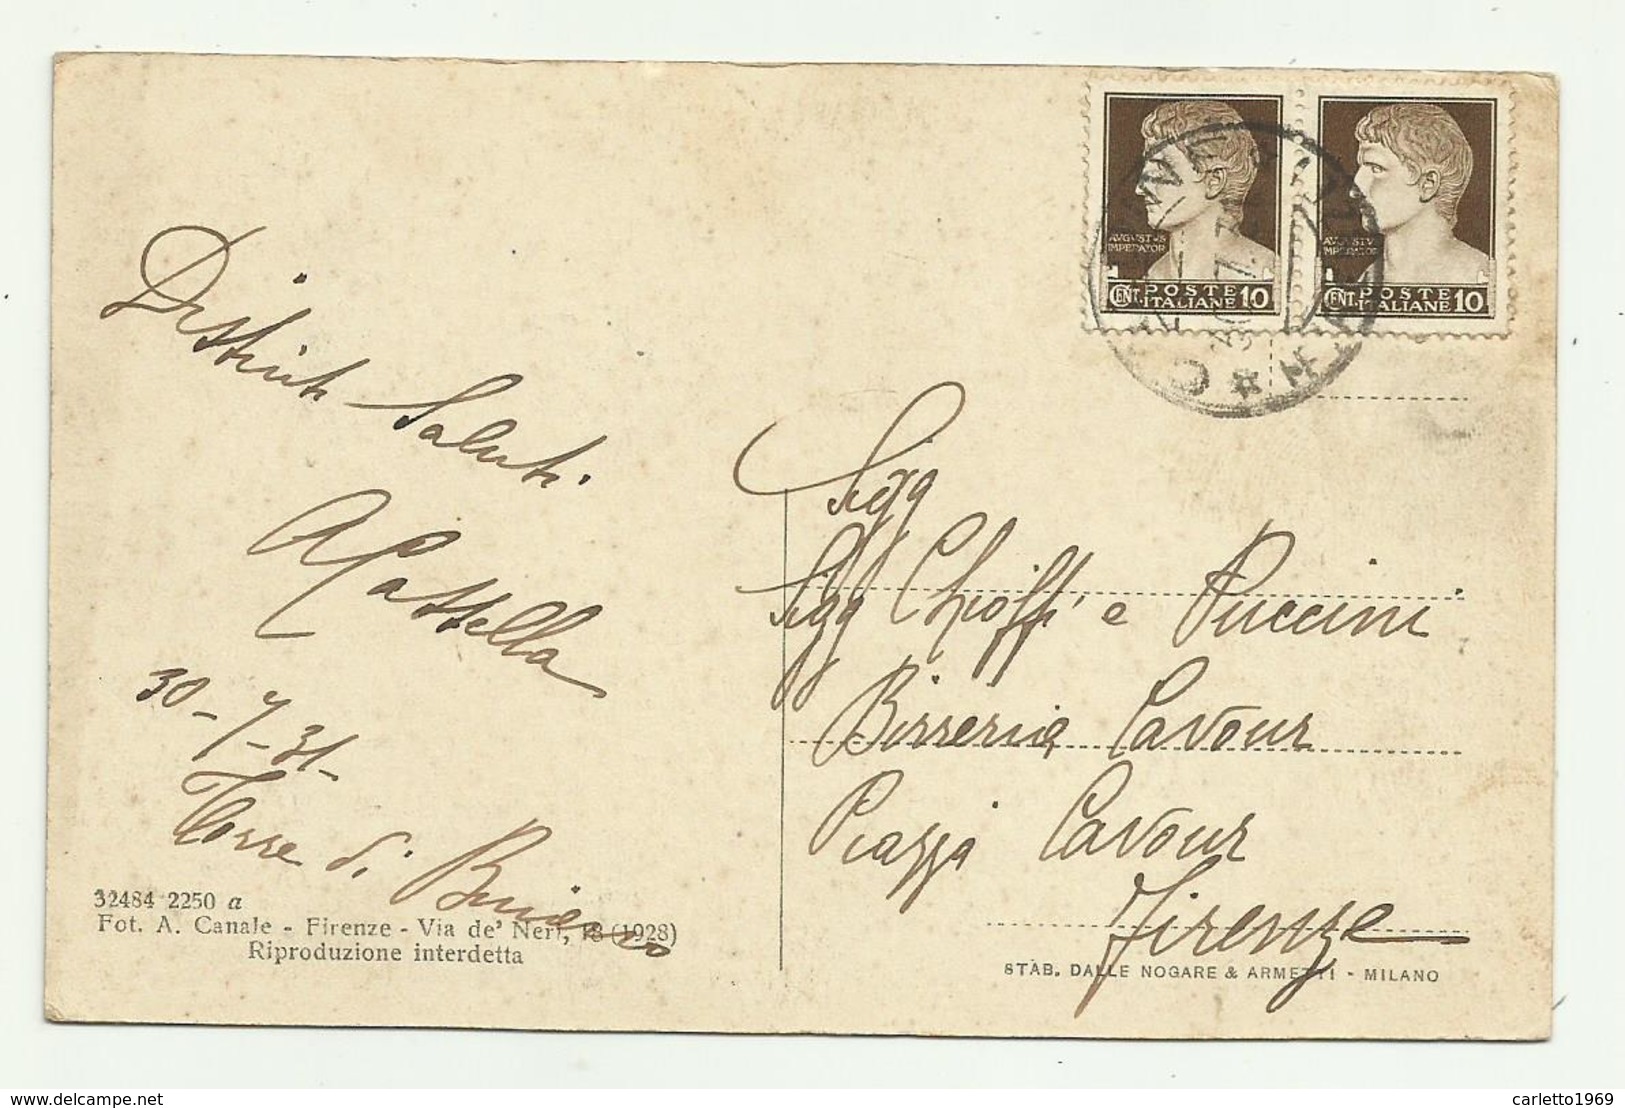 Distinti Saluti.
A Cassella
30-7-31-
Torre di
32484 2250 a
Fot. A. Canale - Firenze - Via de' Neri, 18 (1928)
Riproduzione interdetta
AUGUSTUS
IMPERATOR
CENT. POSTE
ITALIANE 10
AUGUSTUS
IMPERATOR
CENT. POSTE
ITALIANE 10
Sigg
Sigg Chioffi e Puccini
Birreria Cavour
Piazza Cavour
Firenze
STAB. DALLE NOGARE & ARMETTI - MILANO
delcampe.net
carletto1969